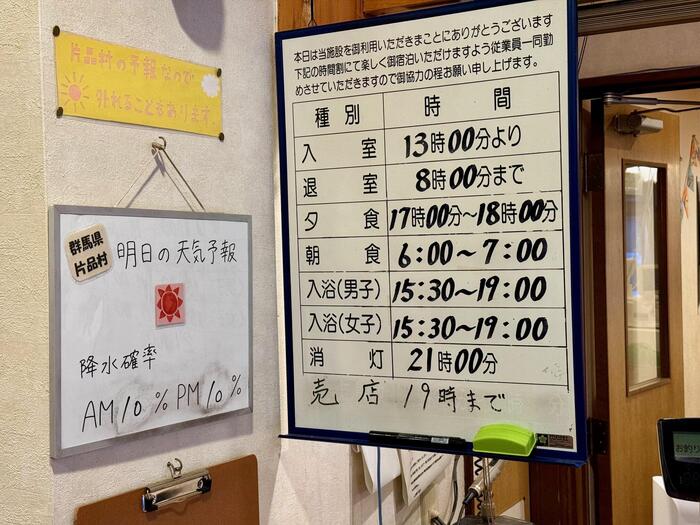 片品村の予報なので
外れることもあります。
群馬県
片品村
明日の天気予報
降水確率
AM10% PM10%
本日は当施設を御利用いただきまことにありがとうございます
下記の時間割にて楽しく御宿泊いただけますよう従業員一同勤
めさせていただきますので御協力の程お願い申し上げます。
種別 時間
入室 13時00分より
退室 8時00分まで
夕食 17時00分〜18時00分
朝食 6:00〜7:00
入浴(男子) 15:30〜19:00
入浴(女子) 15:30〜19:00
消灯 21時00分
売店 19時まで
お釣り